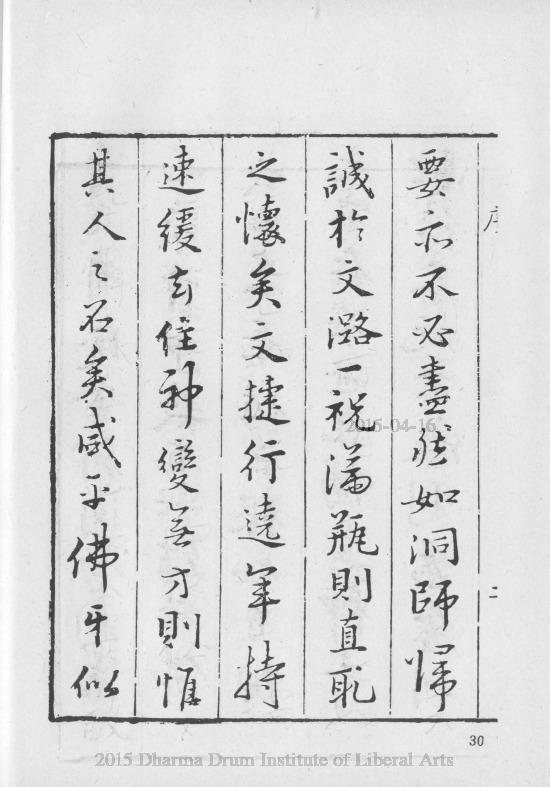 序
二
要亦不必盡然如洞師歸
誠於文潞一祝滿瓶則直耻
之懷矣文捷行遶年持
速緩去住神變無方則惟
其人之名矣咸平佛牙似
30
2015-04-16
2015 Dharma Drum Institute of Liberal Arts